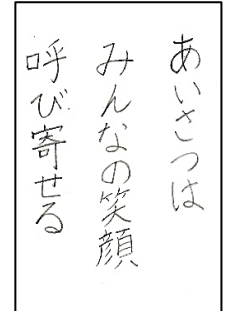 あいさつは
みんなの笑顔
呼び寄せる